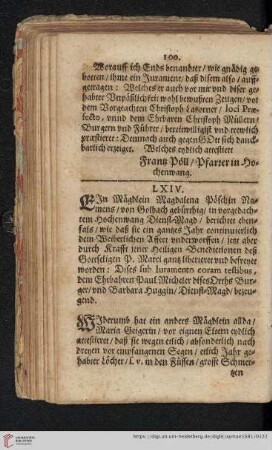 100.
Worauff ich Ends benandter / wie gnädig ge-
botten / ihme ein Jurament / daß disem also / auff-
getragen: Welches er auch vor mir vnd diser ge-
habter Unpäßlichkeit wohl bewusten Zeugen / vor
dem Vorgeachten Christoph Lasorner / loci Præ-
fecto, vnnd dem Ehrbaren Christoph Müllern /
Burgern vnd Führer / bereitwilligist vnd trewlich
præstiert: Demnach auch gegen GOtt sich danck-
barlich erzeiget. Welches eydlich attestiert
Frantz Pöll / Pfarrer in Ho-
chenwang.
LXIV.
EIn Mägdlein Magdalena Pöschin Na-
mens / von Golbach gebürthig / in vorgedach-
tem Hochenwang Dienst-Magd / berichtet eben-
fals / wie daß sie ein gantzes Jahr continuierlich
dem Weiberlichen Affter vnderworffen / jetzt aber
durch Krafft jener Heiligen Benedictionen deß
Gottseeligen P. Marci gantz liberieret vnd befreyet
worden: Dises sub Iuramento coram testibus,
dem Ehrbahren Paul Micheler dises Orths Bur-
ger / vnd Barbara Huggin / Dienst-Magd / bezeu-
gend.
WIderumb hat ein anders Mägdlein allda /
Maria Geigerin / vor eignen Eltern eydlich
attestieret / daß sie wegen etlich / absonderlich nach
dreyen vor empfangenen Segen / etlich Jahr ge-
habter Löcher / s.v. in den Füssen / grosse Schmer-
tzen